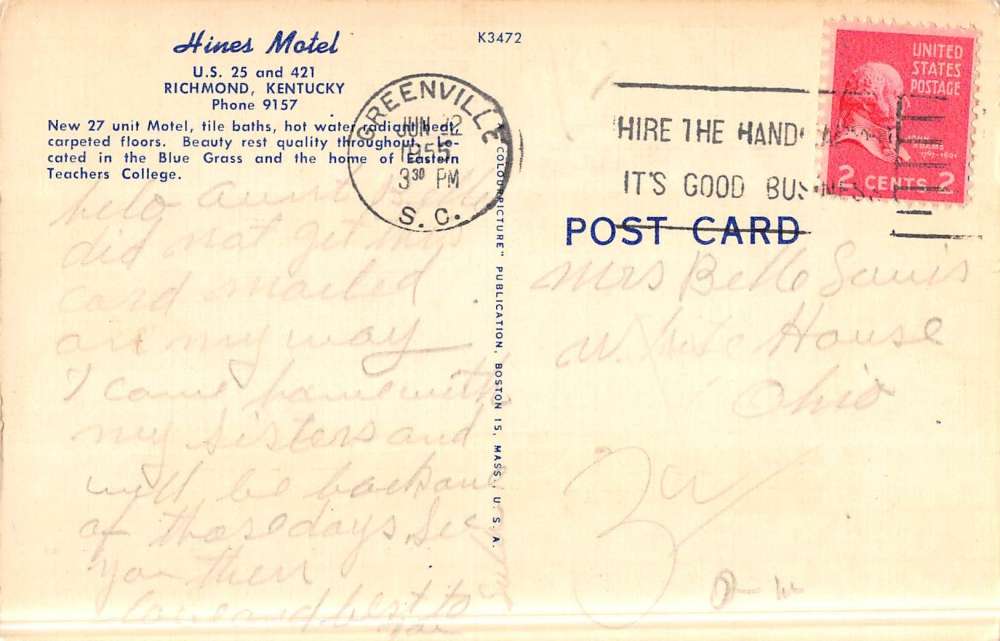 Hines Motel
U.S. 25 and 421
RICHMOND, KENTUCKY
Phone 9157
New 27 unit Motel, tile baths, hot water radiant heat,
carpeted floors. Beauty rest quality throughout. Lo-
cated in the Blue Grass and the home of Eastern
Teachers College.
K3472
GREENVILLE
JUN 12
1955
3 30 PM
S. C.
HIRE THE HANDICAPPED
IT'S GOOD BUSINESS
UNITED
STATES
POSTAGE
JOHN
ADAMS
1797-1801
2 CENTS 2
POST CARD
COLOURPICTURE" PUBLICATION, BOSTON 15, MASS., U. S. A.
helo Aunt Belle
did not get my
card mailed
on my way
I came home with
my sisters and
will be back one
of these days. See
you then
Love and best to
you
Mrs Belle
W. House
Ohio